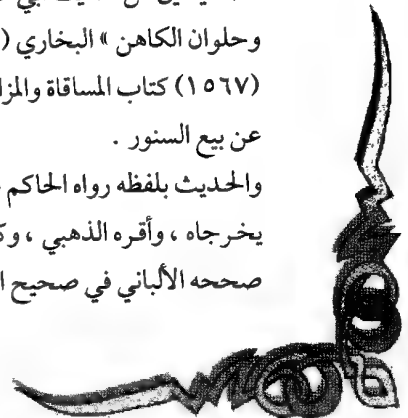 وحلوان الكاهن » البخاري (
(١٥٦٧) كتاب المساقاة والمزا
عن بيع السنور .
والحديث بلفظه رواه الحاكم
يخرجاه ، وأقره الذهبي ، وك
صححه الألباني في صحيح ا